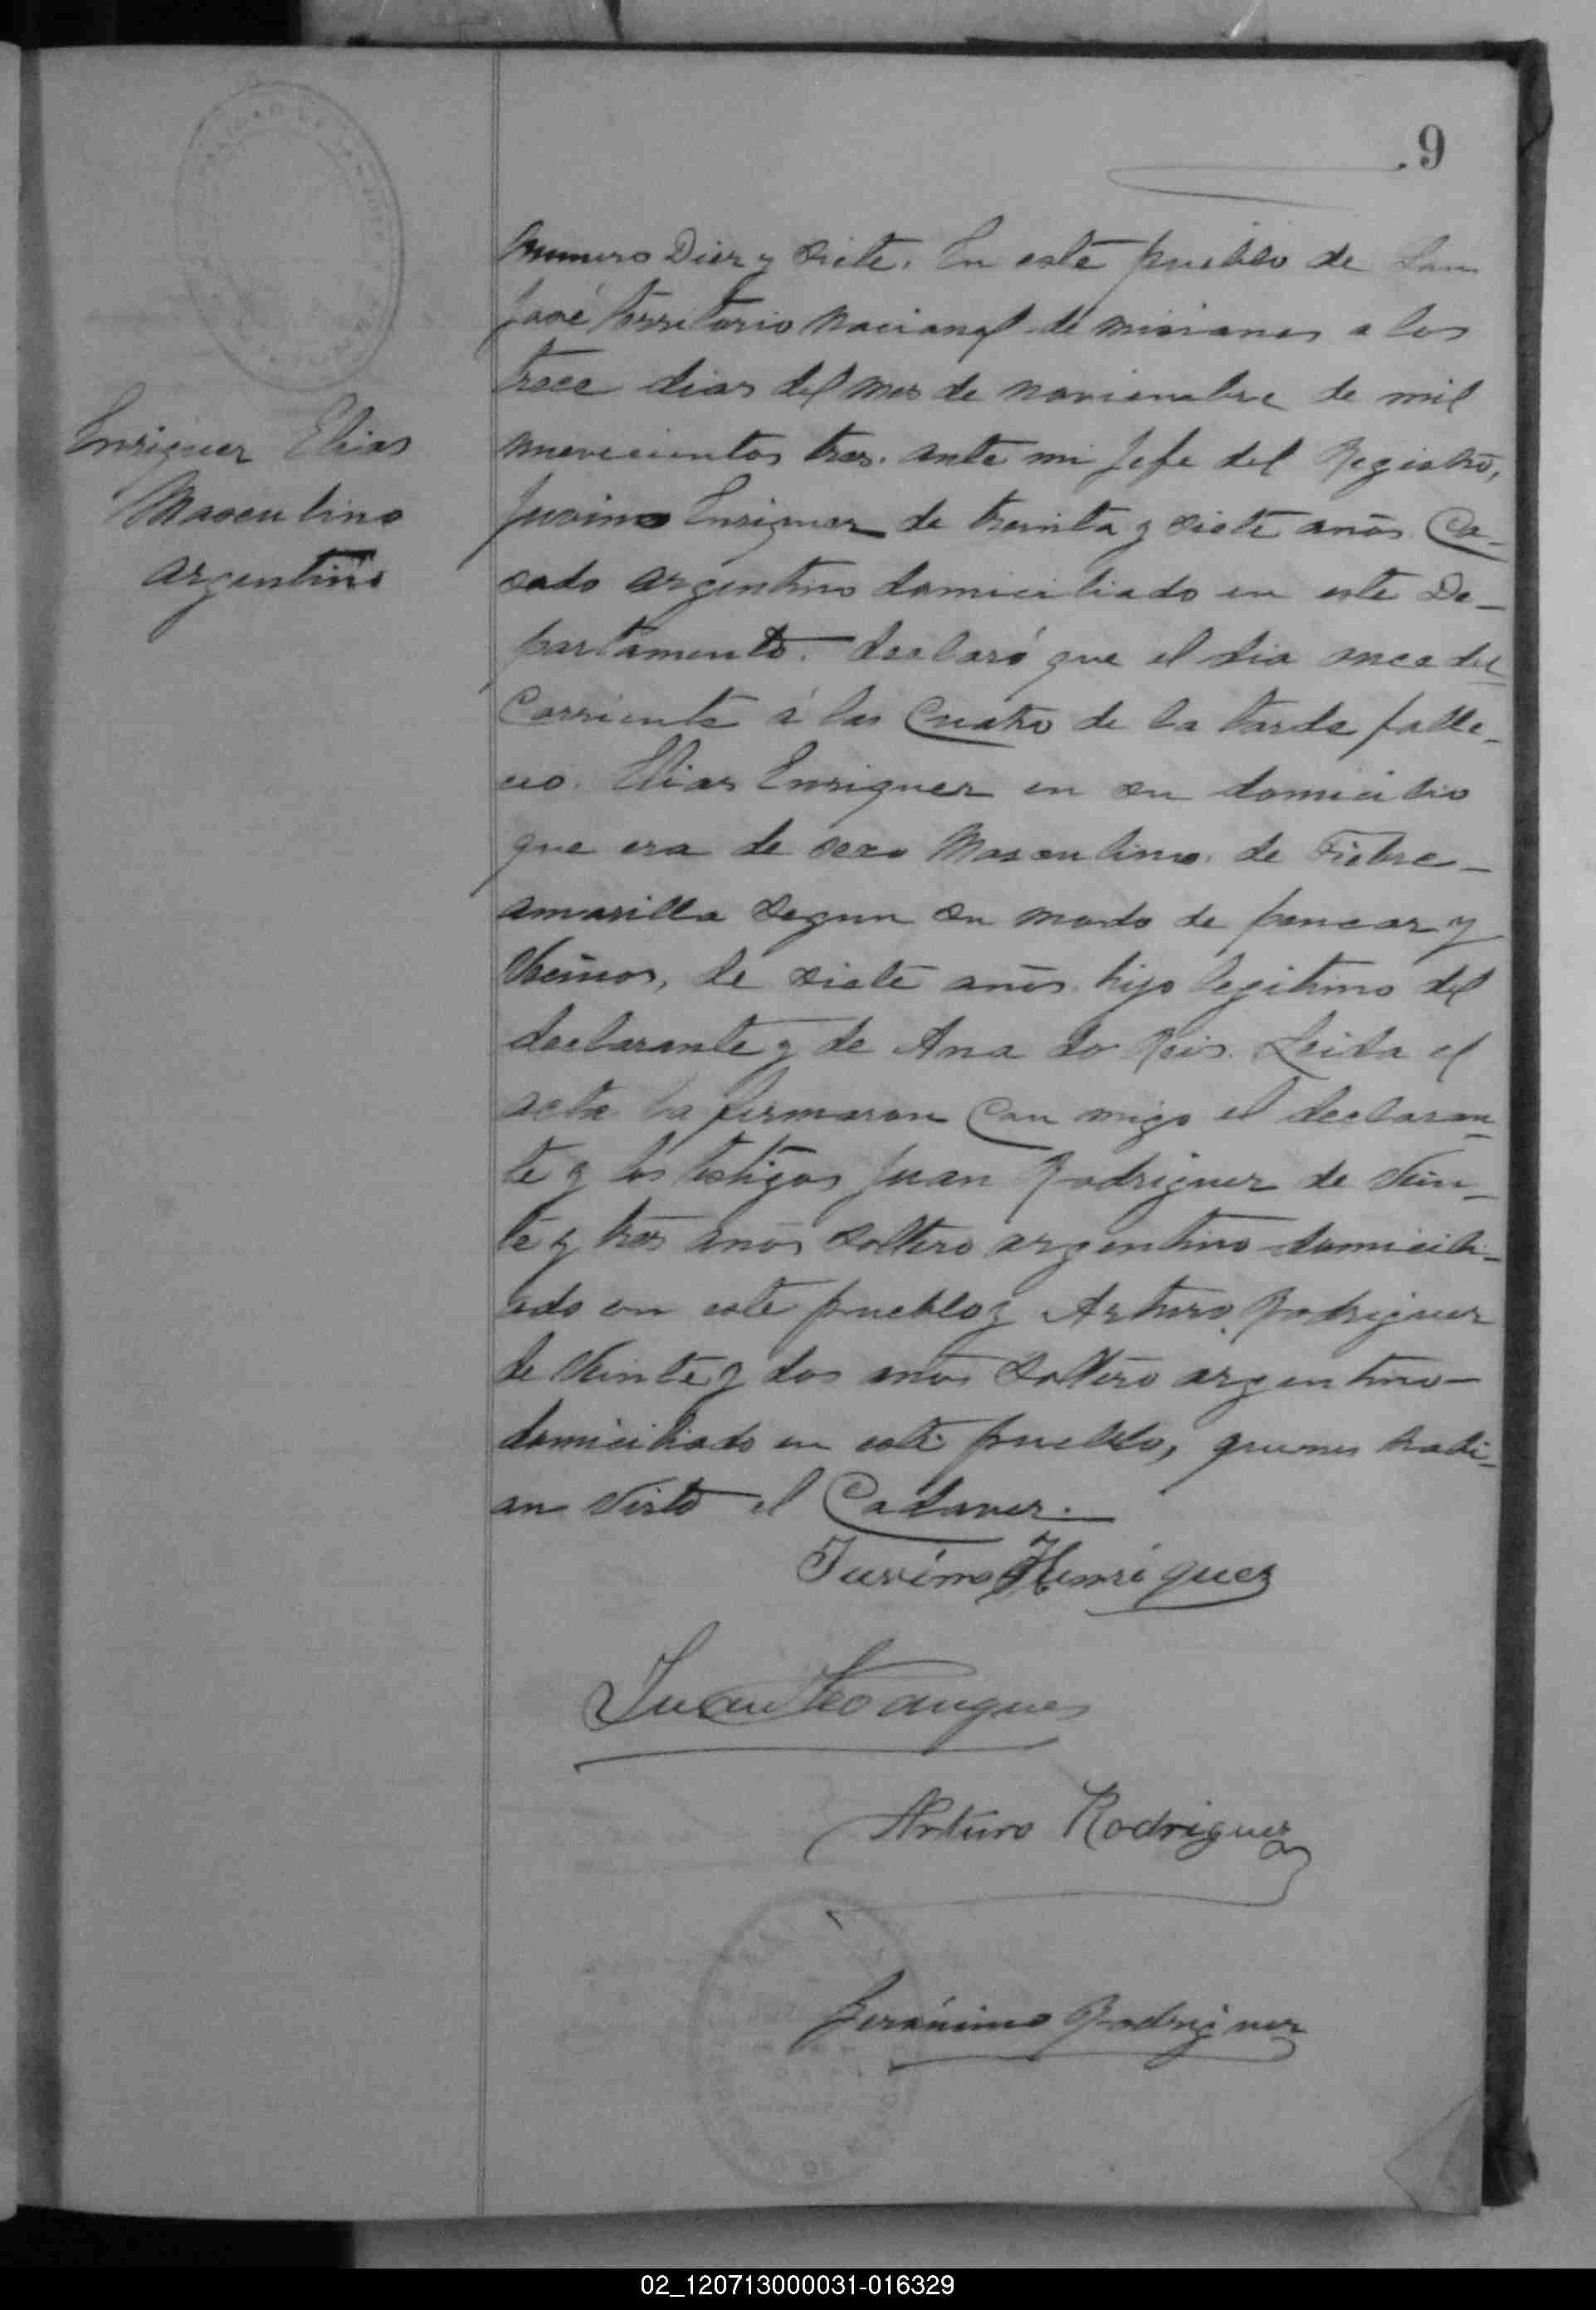 9
Enriquez Elias
Masculino
Argentino
Numero Diez y Siete. En este pueblo de San
José territorio Nacional de Misiones a los
trece dias del mes de Noviembre de mil
nuevecientos tres. ante mi Jefe del Registro,
Juvino Enriquez de treinta y siete años Ca-
sado argentino domiciliado en este De-
partamento. declaró que el dia once del
Corriente á las Cuatro de la tarde falle-
cio. Elias Enriquez en su domicilio
que era de sexo Masculino. de Fiebre-
amarilla segun su modo de pensar y
de siete años hijo legitimo del
declarante y de Ana do Reis. Leida el
acta la firmaron Con migo el declaran-
te y los testigos Juan Rodriguez de Vein-
te y tres años Soltero argentino domicili-
ado en este pueblo y Arturo Rodriguez
de Veinte y dos años Soltero argentino-
domiciliado en este pueblo, quienes habi-
an Visto el Cadaver.
Juvino Henriquez
Juan
Arturo Rodriguez
Gerónimo Rodriguez
02_120713000031-016329